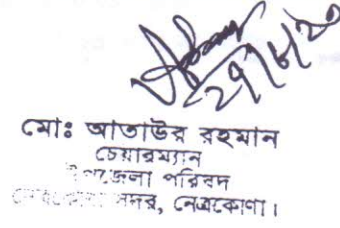 ২৭/৮/২০
মোঃ আতাউর রহমান
চেয়ারম্যান
উপজেলা পরিষদ
নেত্রকোণা সদর, নেত্রকোণা।